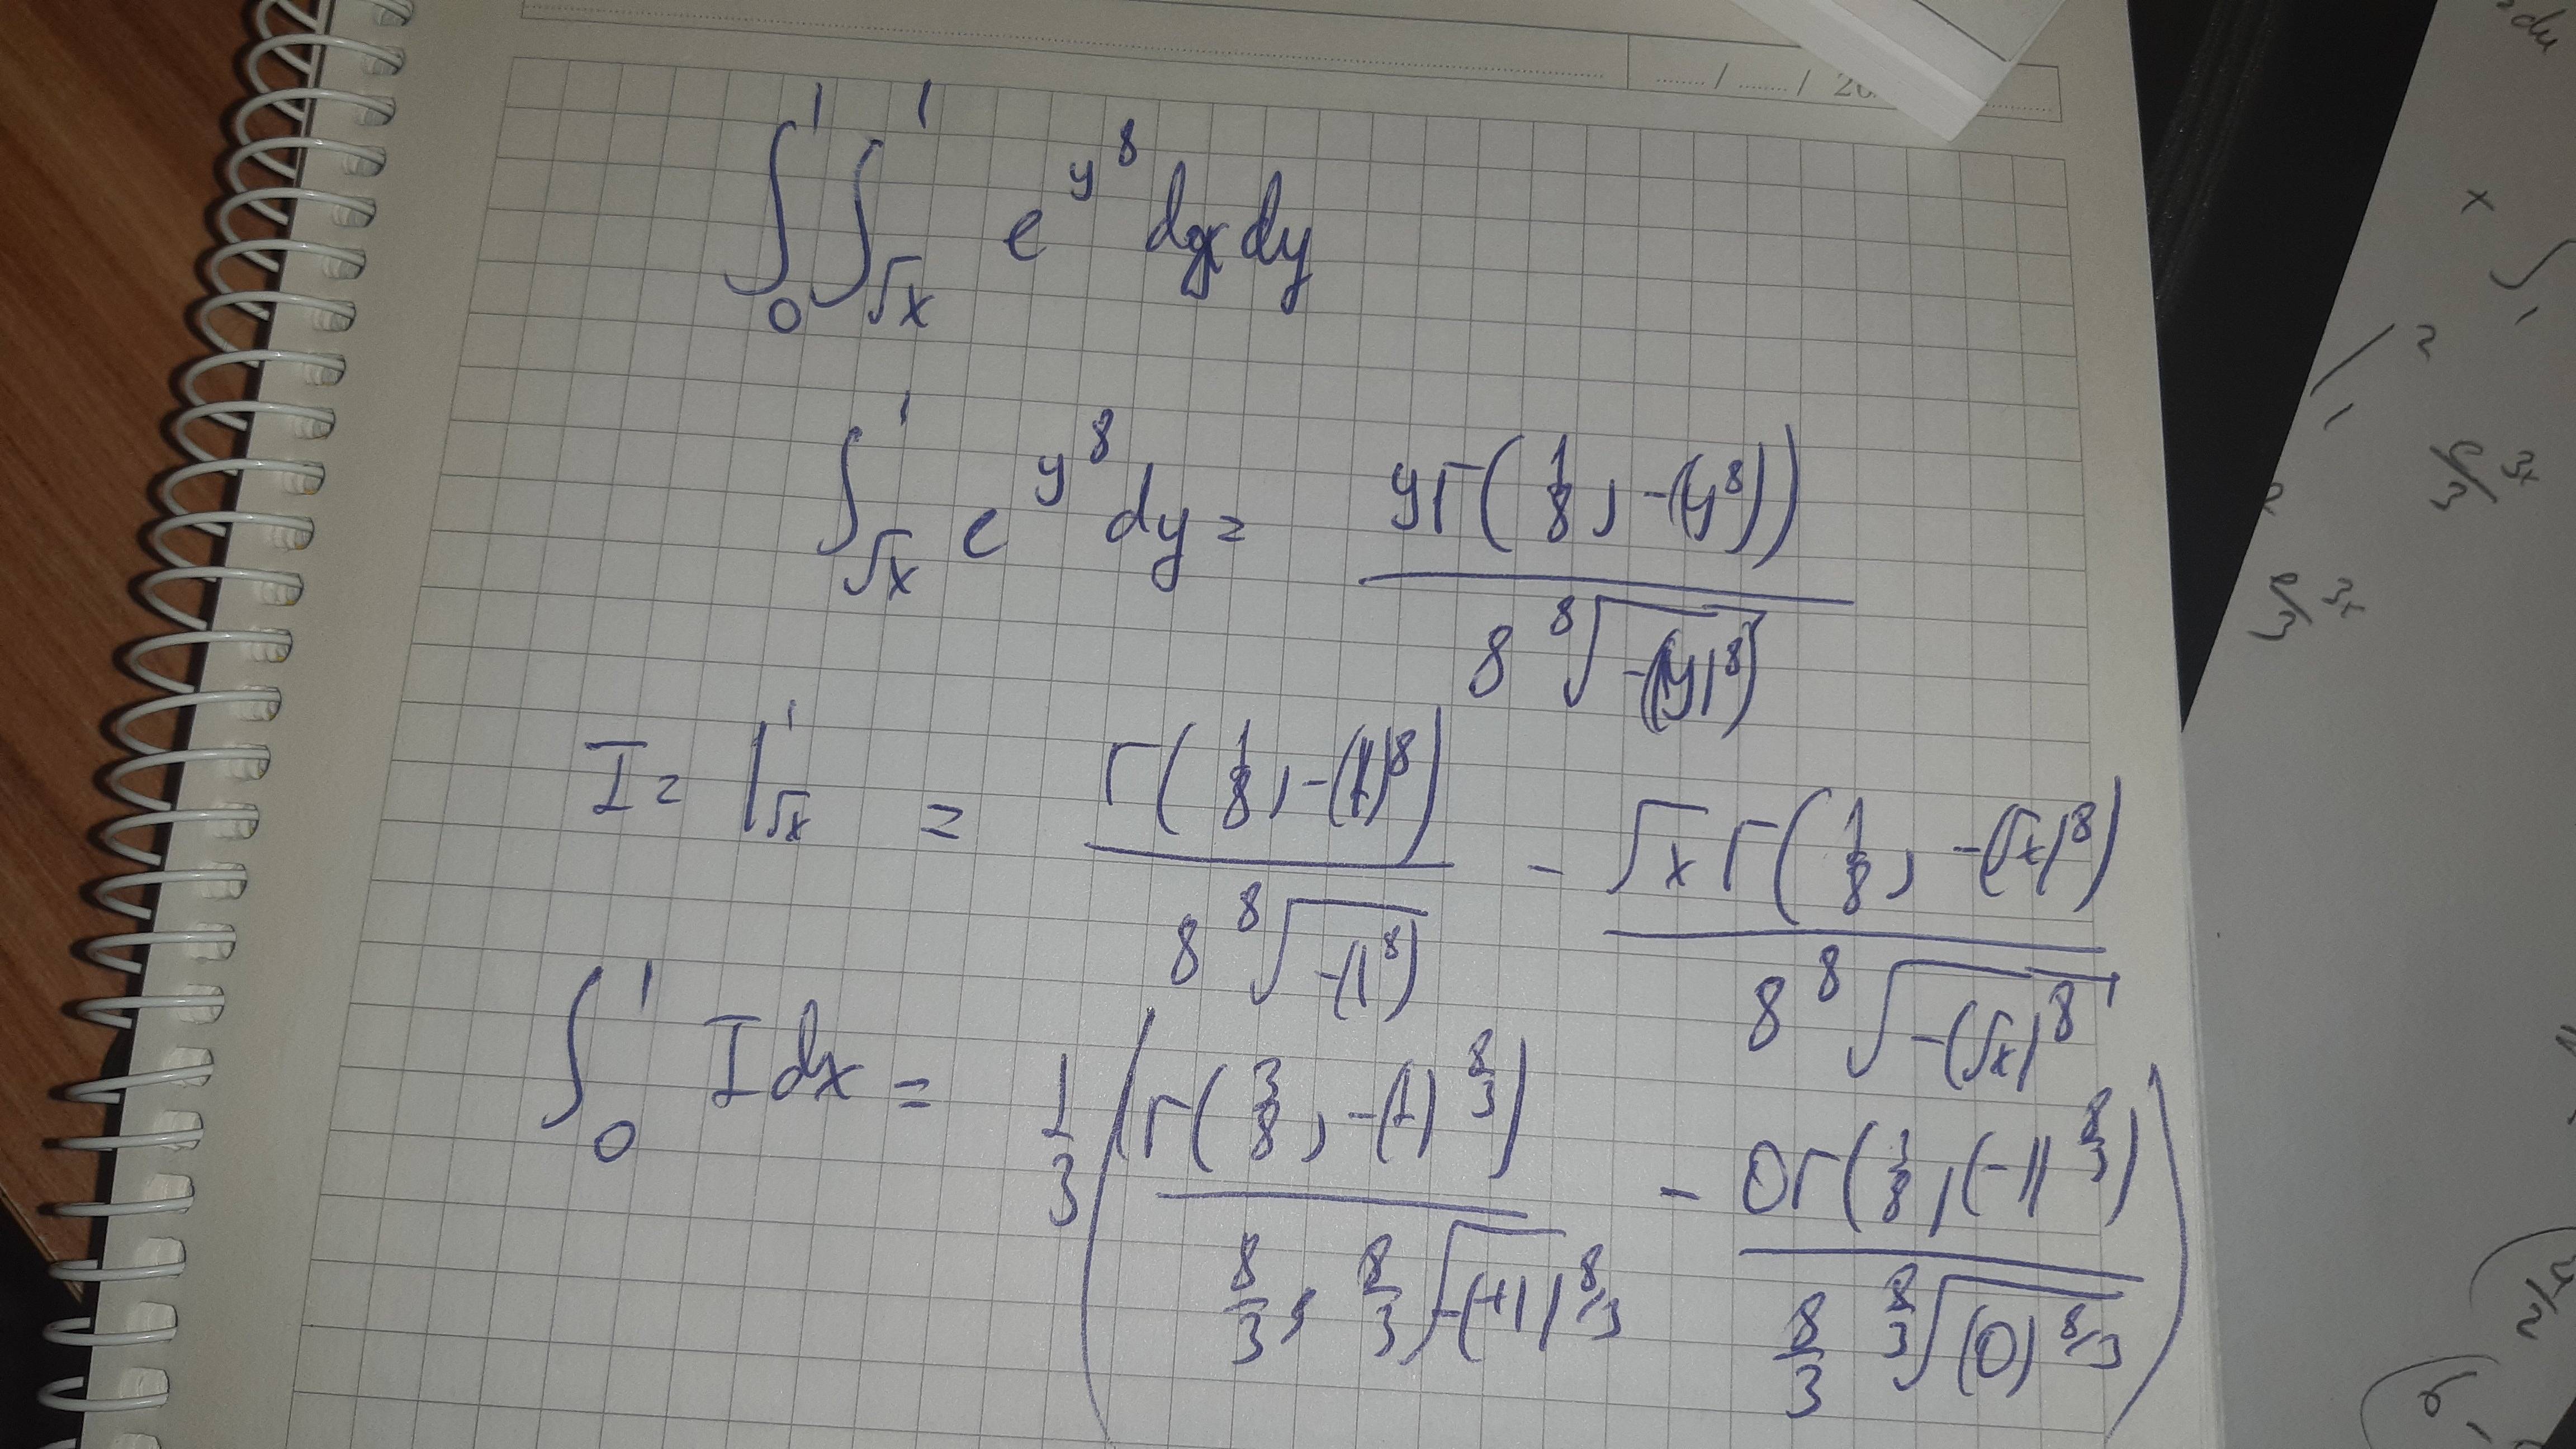 ...... / ...... / 20
∫_0^1 ∫_{√x}^1 e^{y^8} dx dy
∫_{√x}^1 e^{y^8} dy = yΓ(1/8, -(y^8)) / 8 ⁸√(-(y)^8)
I = |_{√x}^1 = Γ(1/8, -(1)^8) / 8 ⁸√(-(1^8)) - √x Γ(1/8, -(√x)^8) / 8 ⁸√(-(√x)^8)
∫_0^1 I dx = 1/3 (Γ(3/8, -(1)^{8/3}) / (8/3 · ^{8/3}√(-(+1)^{8/3})) - 0Γ(1/8, (-1)^{8/3}) / (8/3 ^{8/3}√((0)^{8/3})))